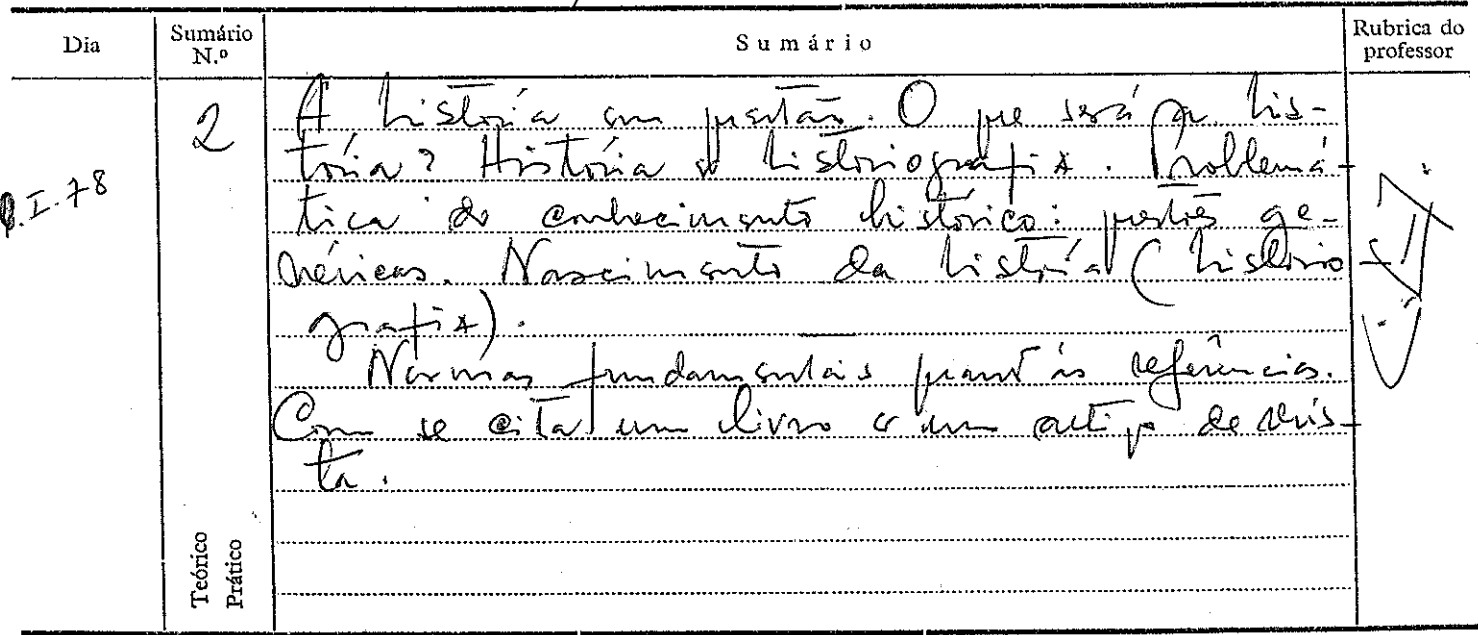 Dia
Sumário N.º
Sumário
Rubrica do professor
I.78
2
A história em questão. O que será a his-
tória? História e historiografia. Problemá-
tica do conhecimento histórico: questões ge-
néricas. Nascimento da história (historio
grafia).
Normas fundamentais quanto às referências.
Como se cita um livro e um artigo de revis-
ta.
Teórico
Prático